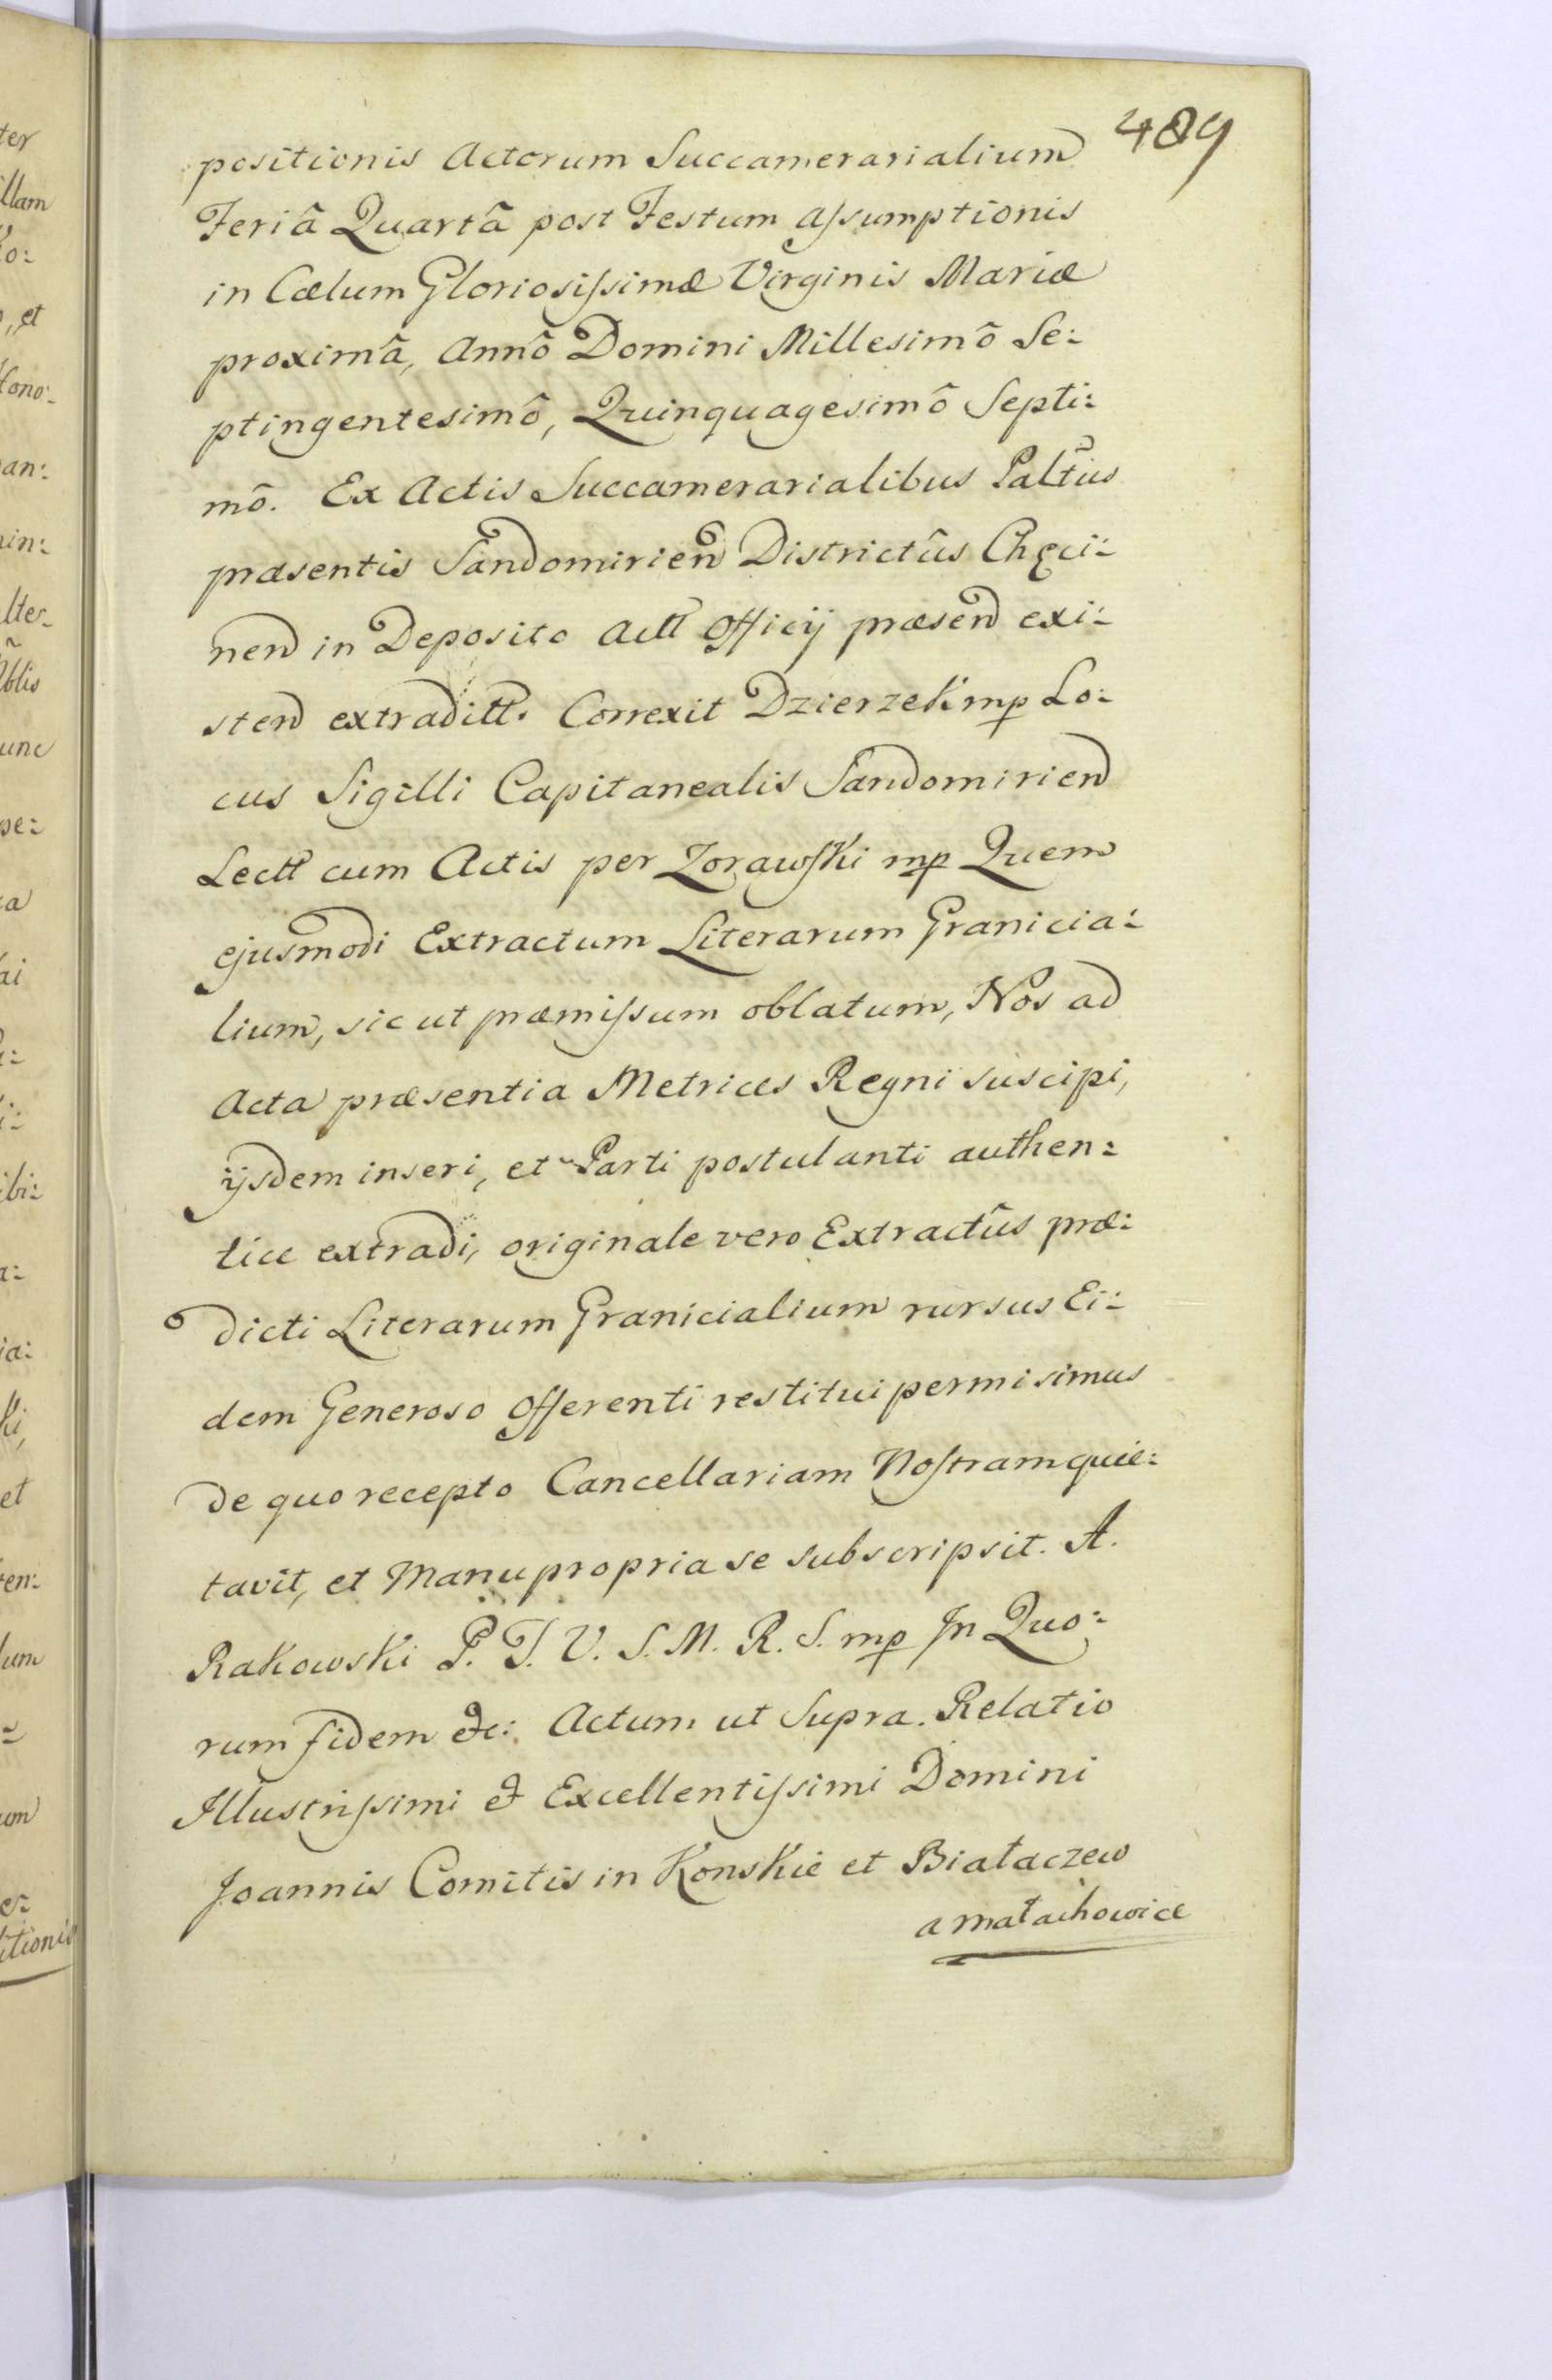 489
positionis Actorum Succamerarialium
Feriâ Quartâ post Festum Assumptionis
in Cælum Gloriosissimæ Virginis Mariæ
proximâ, Annô Domini Millesimô Se:
ptingentesimô, Quinquagesimô Septi:
mô. Ex Actis Succamerarialibus Paltûs
præsentis Sandomirien Districtûs Chęci:
nen in Deposito Actt Officij præsen exi:
sten extraditt. Correxit Dzierzek mp Lo:
cus Sigilli Capitanealis Sandomirien
Lectt cum Actis per Zorawski mp Quem
ejusmodi Extractum Literarum Granicia:
lium, sicut præmissum oblatum, Nos ad
Acta præsentia Metrices Regni suscipi,
ijsdem inseri, et Parti postulanti authen:
tice extradi, originale vero Extractûs præ:
dicti Literarum Granicialium rursus Ei:
dem Generoso Offerenti restitui permisimus
de quo recepto Cancellariam Nostram quie:
tavit, et Manu propria se subscripsit. A.
Rakowski P. T. V. S. M. R. S. mp In Quo:
rum fidem &c: Actum ut Supra. Relatio
Illustrissimi & Excellentissimi Domini
Joannis Comitis in Konskie et Białaczew
a Małachowice